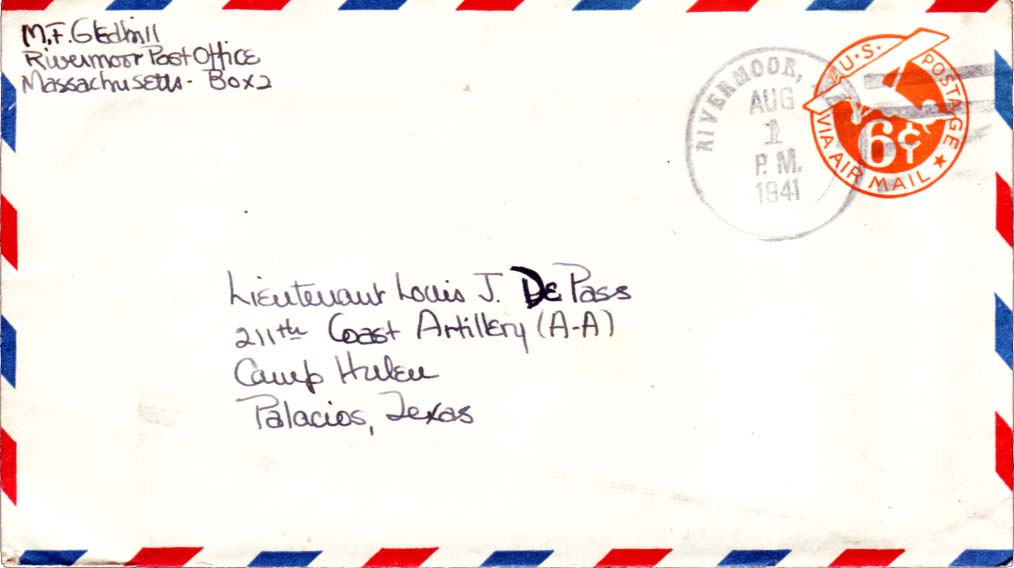 M.F. Gledhill
Rivermoor Post Office
Massachusetts - Box 2
RIVERMOOR,
AUG
1
P.M.
1941
U.S. POSTAGE
6¢
VIA AIR MAIL
Lieutenant Louis J. DePass
211th Coast Artillery (A-A)
Camp Hulen
Palacios, Texas